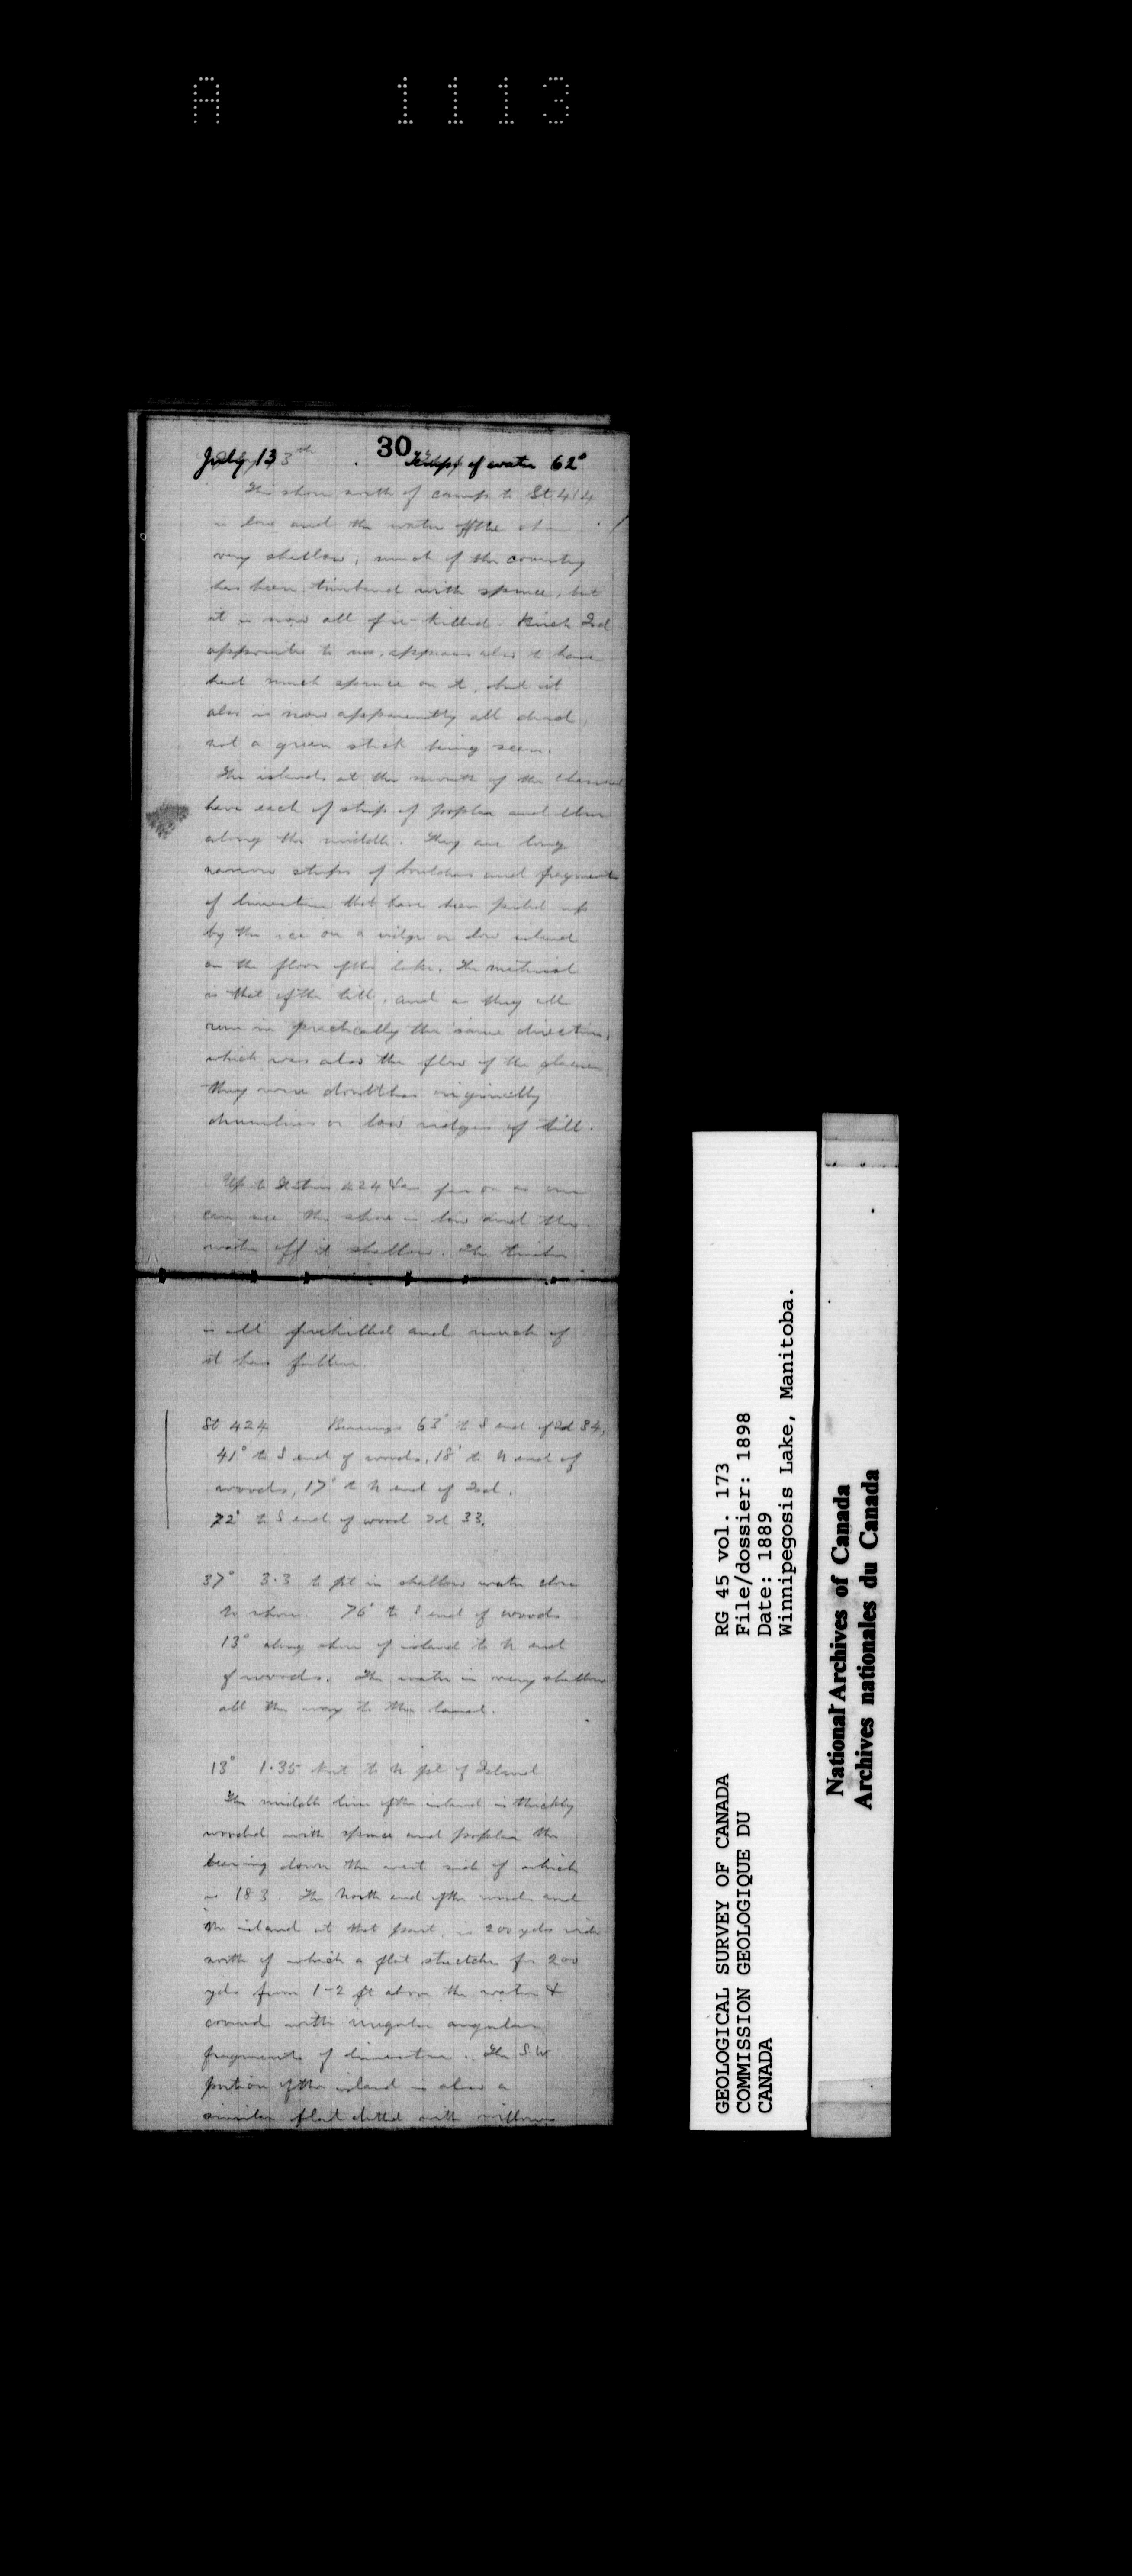 A 1113
30
July 13th Temp of water 62°
The shore north of camp to St 414
is low and the water off the shore
very shallow, much of the country
has been timbered with spruce, but
it is now all fire-killed. Birch Isd
opposite to us, appears also to have
had much spruce on it, but it
also is now apparently all dead,
not a green stick being seen.
The islands at the mouth of the channel
have each of strip of poplar and elm
along the middle. They are long
narrow strips of boulders and fragments
of limestone that have been piled up
by the ice on a ridge or low island
on the floor of the lake. The material
is that of the till, and as they all
run in practically the same direction,
which was also the flow of the glacier
they were doubtless originally
drumlins or low ridges of till.
Up to Station 424 & as far on as one
can see the shore is low and the
water off it shallow. The timber
is all firekilled and much of
it has fallen.
St 424 Bearings 63° to S end of Isd 34,
41° to S end of woods, 18° to N end of
woods, 17° to N end of Isd.
72° to S end of wood Isd 33.
37° 3.3 to pt in shallow water close
to shore. 76° to S end of woods
13° along shore of island to N end
of woods. The water is very shallow
all the way to the land.
13° 1.35 to N pt of Island
The middle line of the island is thickly
wooded with spruce and poplar the
bearing down the west side of which
is 183. The North end of the woods and
the island at that point, is 200 yds wide
north of which a flat stretches for 200
yds from 1-2 ft above the water &
covered with irregular angular
fragments of limestone. The SW
portion of the island is also a
similar flat dotted with willows
GEOLOGICAL SURVEY OF CANADA
COMMISSION GEOLOGIQUE DU
CANADA
RG 45 vol. 173
File/dossier: 1898
Date: 1889
Winnipegosis Lake, Manitoba.
National Archives of Canada
Archives nationales du Canada